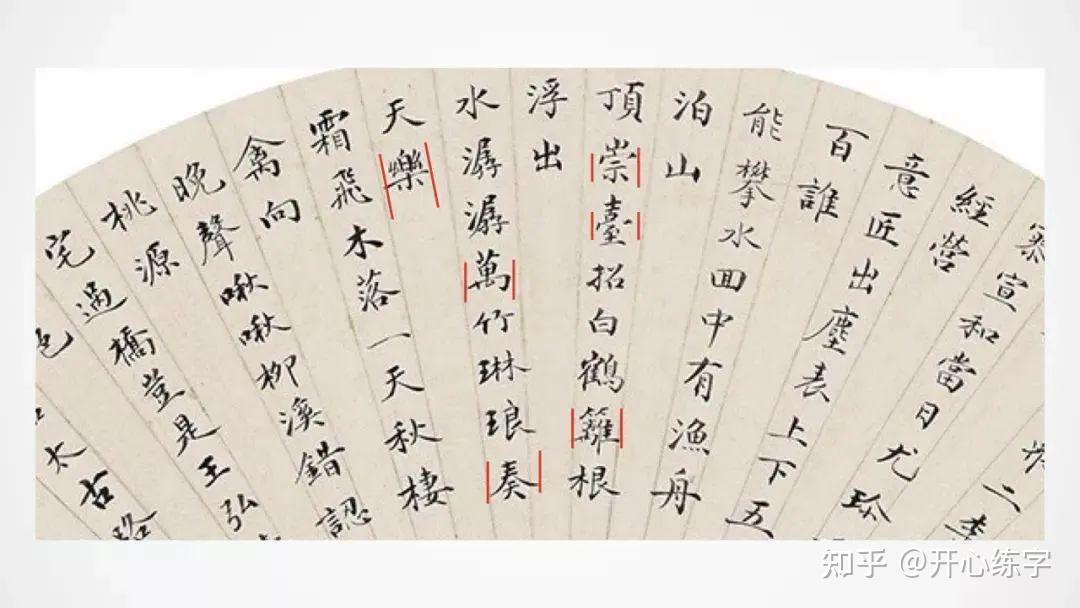 二李
宣和當日尤珍
經營
意匠出塵表上下五
百誰
能攀水回中有漁舟
泊山
頂崇臺招白鶴籬根
浮出
水潺潺萬竹琳琅奏
天樂
霜飛木落一天秋棲
禽向
晚聲啾啾柳溪錯認
桃源
宅過橋豈是王弘
色
太古路
知乎 @开心练字